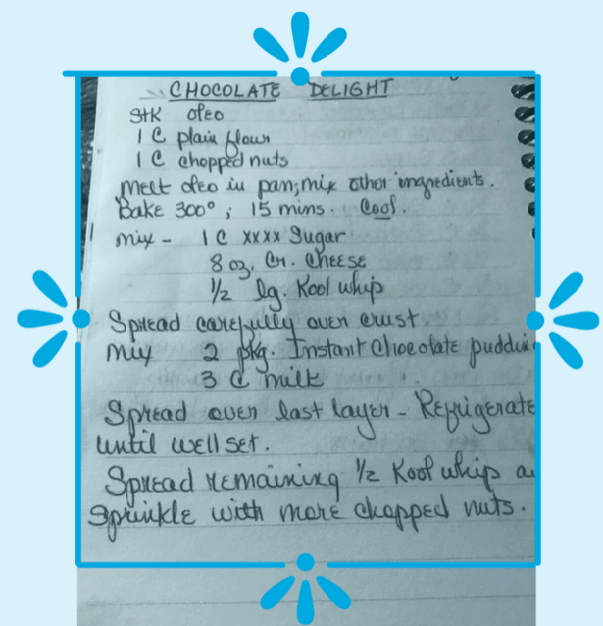 CHOCOLATE DELIGHT
Stk oleo
1 C plain flour
1 C chopped nuts
melt oleo in pan; mix other ingredients.
Bake 300°; 15 mins. Cool.
mix - 1 C xxxx Sugar
8 oz. Cr. Cheese
1/2 lg. Kool whip
Spread carefully over crust.
Mix 2 pkg. Instant Chocolate puddin
3 C milk
Spread over last layer - Refrigerate
until well set.
Spread remaining 1/2 Kool whip a
Sprinkle with more chopped nuts.